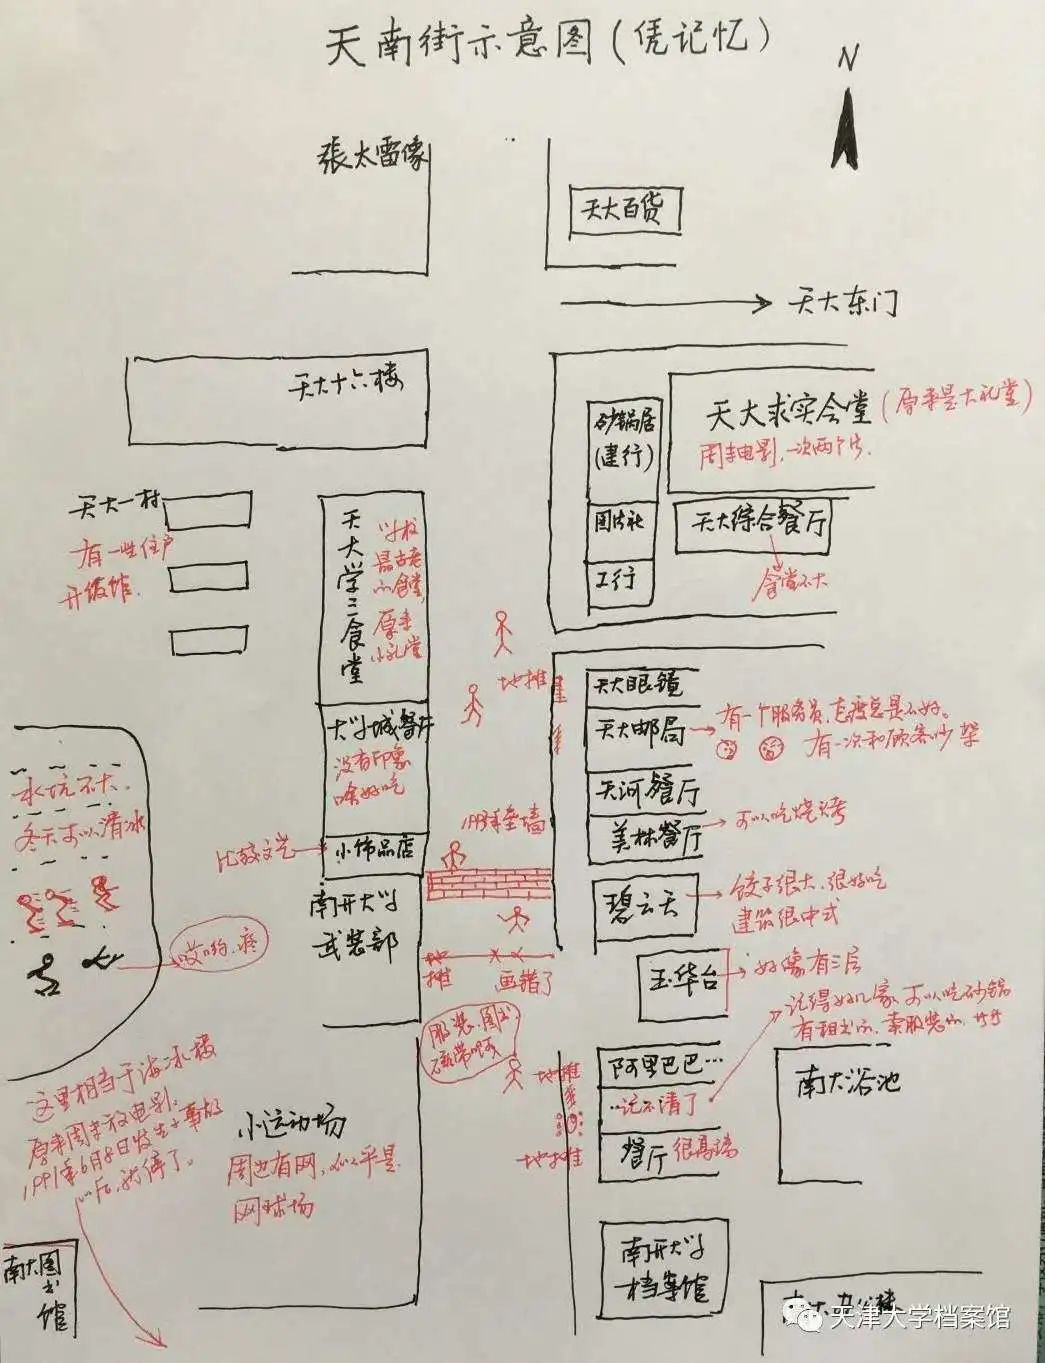 天南街示意图(凭记忆)
N
張太雷像
天大百货
天大东门
天大十六楼
砂锅居
(建行)
天大求实会堂
(原来是大礼堂)
周末电影,一次两个片.
天大一村
有一些住户
开饭馆.
天大学三食堂
学校
最古老
的食堂,
原来
小礼堂
图片社
天大综合餐厅
工行
食堂不大
地摊
天大眼镜
天大邮局
有一个服务员,态度总是不好。
有一次和顾客吵架
大学城餐厅
没有印象
啥好吃
天河餐厅
1993年垒墙
美林餐厅
可以吃烧烤
水坑不大.
冬天可以滑冰
比较文艺
小饰品店
南开大学
武装部
碧云天
饺子很大、很好吃
建筑很中式
哎哟.疼
地摊
画错了
玉华台
好像有三层
记得好几家,可以吃砂锅
有租书的、卖服装的
服装、图书
磁带
地摊
阿里巴巴…
…记不清了
南大浴池
这里相当于海冰楼
原来周末放电影.
1991年6月8日发生了事故
以后就停了。
小运动场
周边有网,似乎是
网球场
地摊
餐厅
很高端
南大图书馆
南开大学
档案馆
南大办公楼
天津大学档案馆